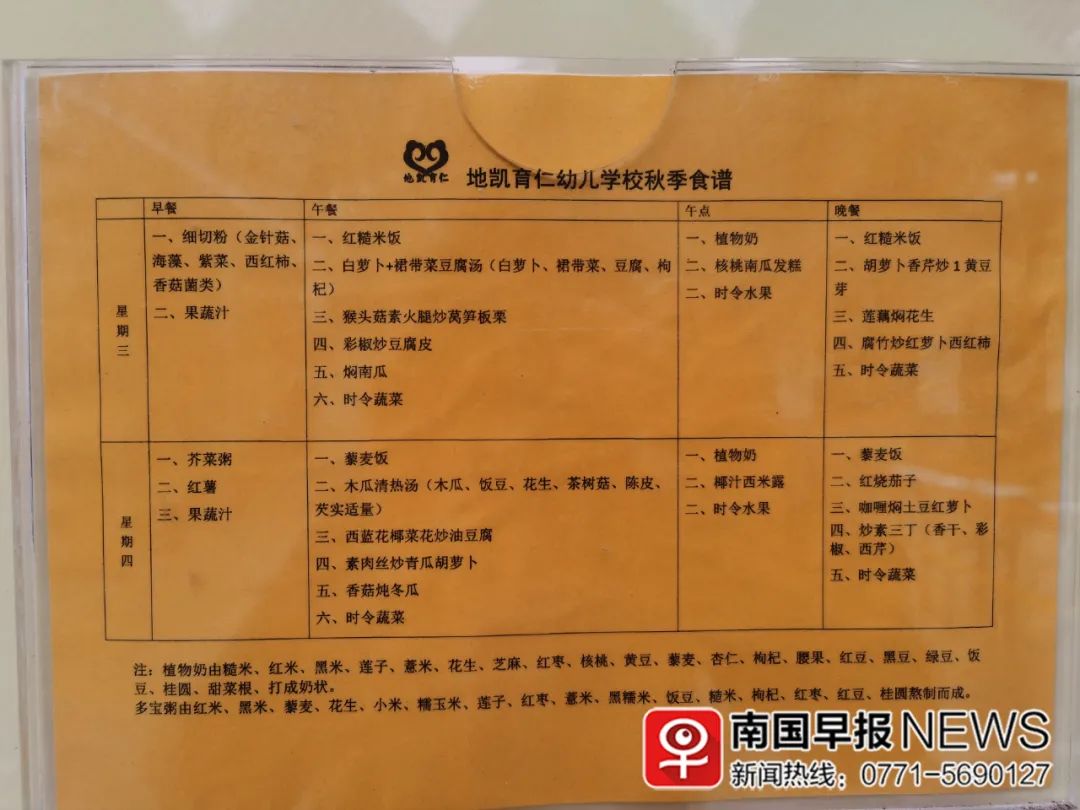 地凯育仁 地凯育仁幼儿学校秋季食谱
早餐 午餐 午点 晚餐
星期三
一、细切粉（金针菇、
海藻、紫菜、西红柿、
香菇菌类）
二、果蔬汁
一、红糙米饭
二、白萝卜+裙带菜豆腐汤（白萝卜、裙带菜、豆腐、枸
杞）
三、猴头菇素火腿炒莴笋板栗
四、彩椒炒豆腐皮
五、焖南瓜
六、时令蔬菜
一、植物奶
二、核桃南瓜发糕
二、时令水果
一、红糙米饭
二、胡萝卜香芹炒1黄豆
芽
三、莲藕焖花生
四、腐竹炒红萝卜西红柿
五、时令蔬菜
星期四
一、芥菜粥
二、红薯
三、果蔬汁
一、藜麦饭
二、木瓜清热汤（木瓜、饭豆、花生、茶树菇、陈皮、
芡实适量）
三、西蓝花椰菜花炒油豆腐
四、素肉丝炒青瓜胡萝卜
五、香菇炖冬瓜
六、时令蔬菜
一、植物奶
二、椰汁西米露
二、时令水果
一、藜麦饭
二、红烧茄子
三、咖喱焖土豆红萝卜
四、炒素三丁（香干、彩
椒、西芹）
五、时令蔬菜
注：植物奶由糙米、红米、黑米、莲子、薏米、花生、芝麻、红枣、核桃、黄豆、藜麦、杏仁、枸杞、腰果、红豆、黑豆、绿豆、饭
豆、桂圆、甜菜根、打成奶状。
多宝粥由红米、黑米、藜麦、花生、小米、糯玉米、莲子、红枣、薏米、黑糯米、饭豆、糙米、枸杞、红枣、红豆、桂圆熬制而成。
南国早报NEWS
新闻热线：0771-5690127